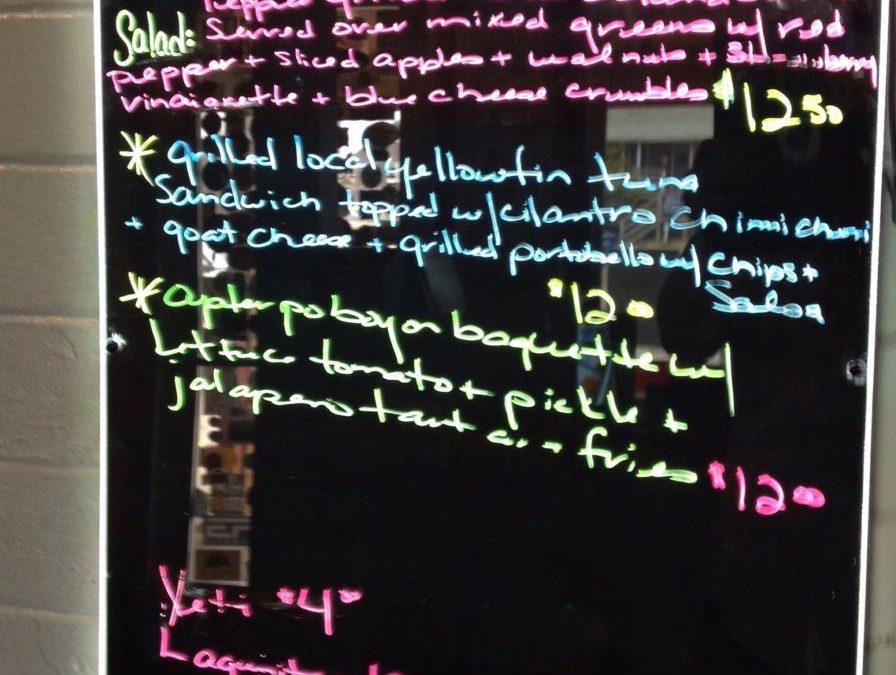 Salad: Served over mixed greens w/ red
pepper + sliced apples + walnuts +
vinaigrette + blue cheese crumbles $12 50
* grilled local yellowfin tuna
Sandwich topped w/ cilantro chimichurri
+ goat cheese + grilled portobello w/ chips +
Salsa
$12 00
* oyster po boy on baguette w/
Lettuce tomato + pickle +
jalapeno tartar + fries $12 00
Yeti $4 00